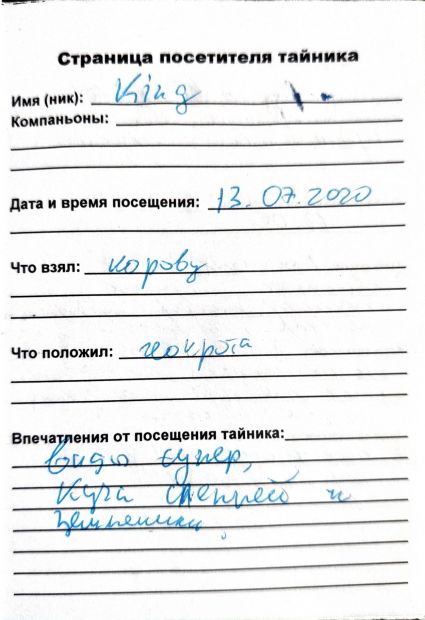 Страница посетителя тайника
Имя (ник): King
Компаньоны:
Дата и время посещения: 13.07.2020
Что взял: корову
Что положил: геокрота
Впечатления от посещения тайника:
Виды супер,
Куча слепней и
Земляники.